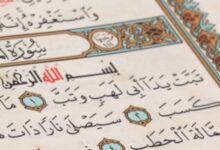 وَاسْتَغْفِرْهُ
سُورَةُ
بِسْمِ اللَّهِ الرَّحْمٰنِ
تَبَّتْ يَدَا أَبِي لَهَبٍ وَتَبَّ ١
كَسَبَ ٢ سَيَصْلَى نَارًا ذَاتَ
الْحَطَبِ